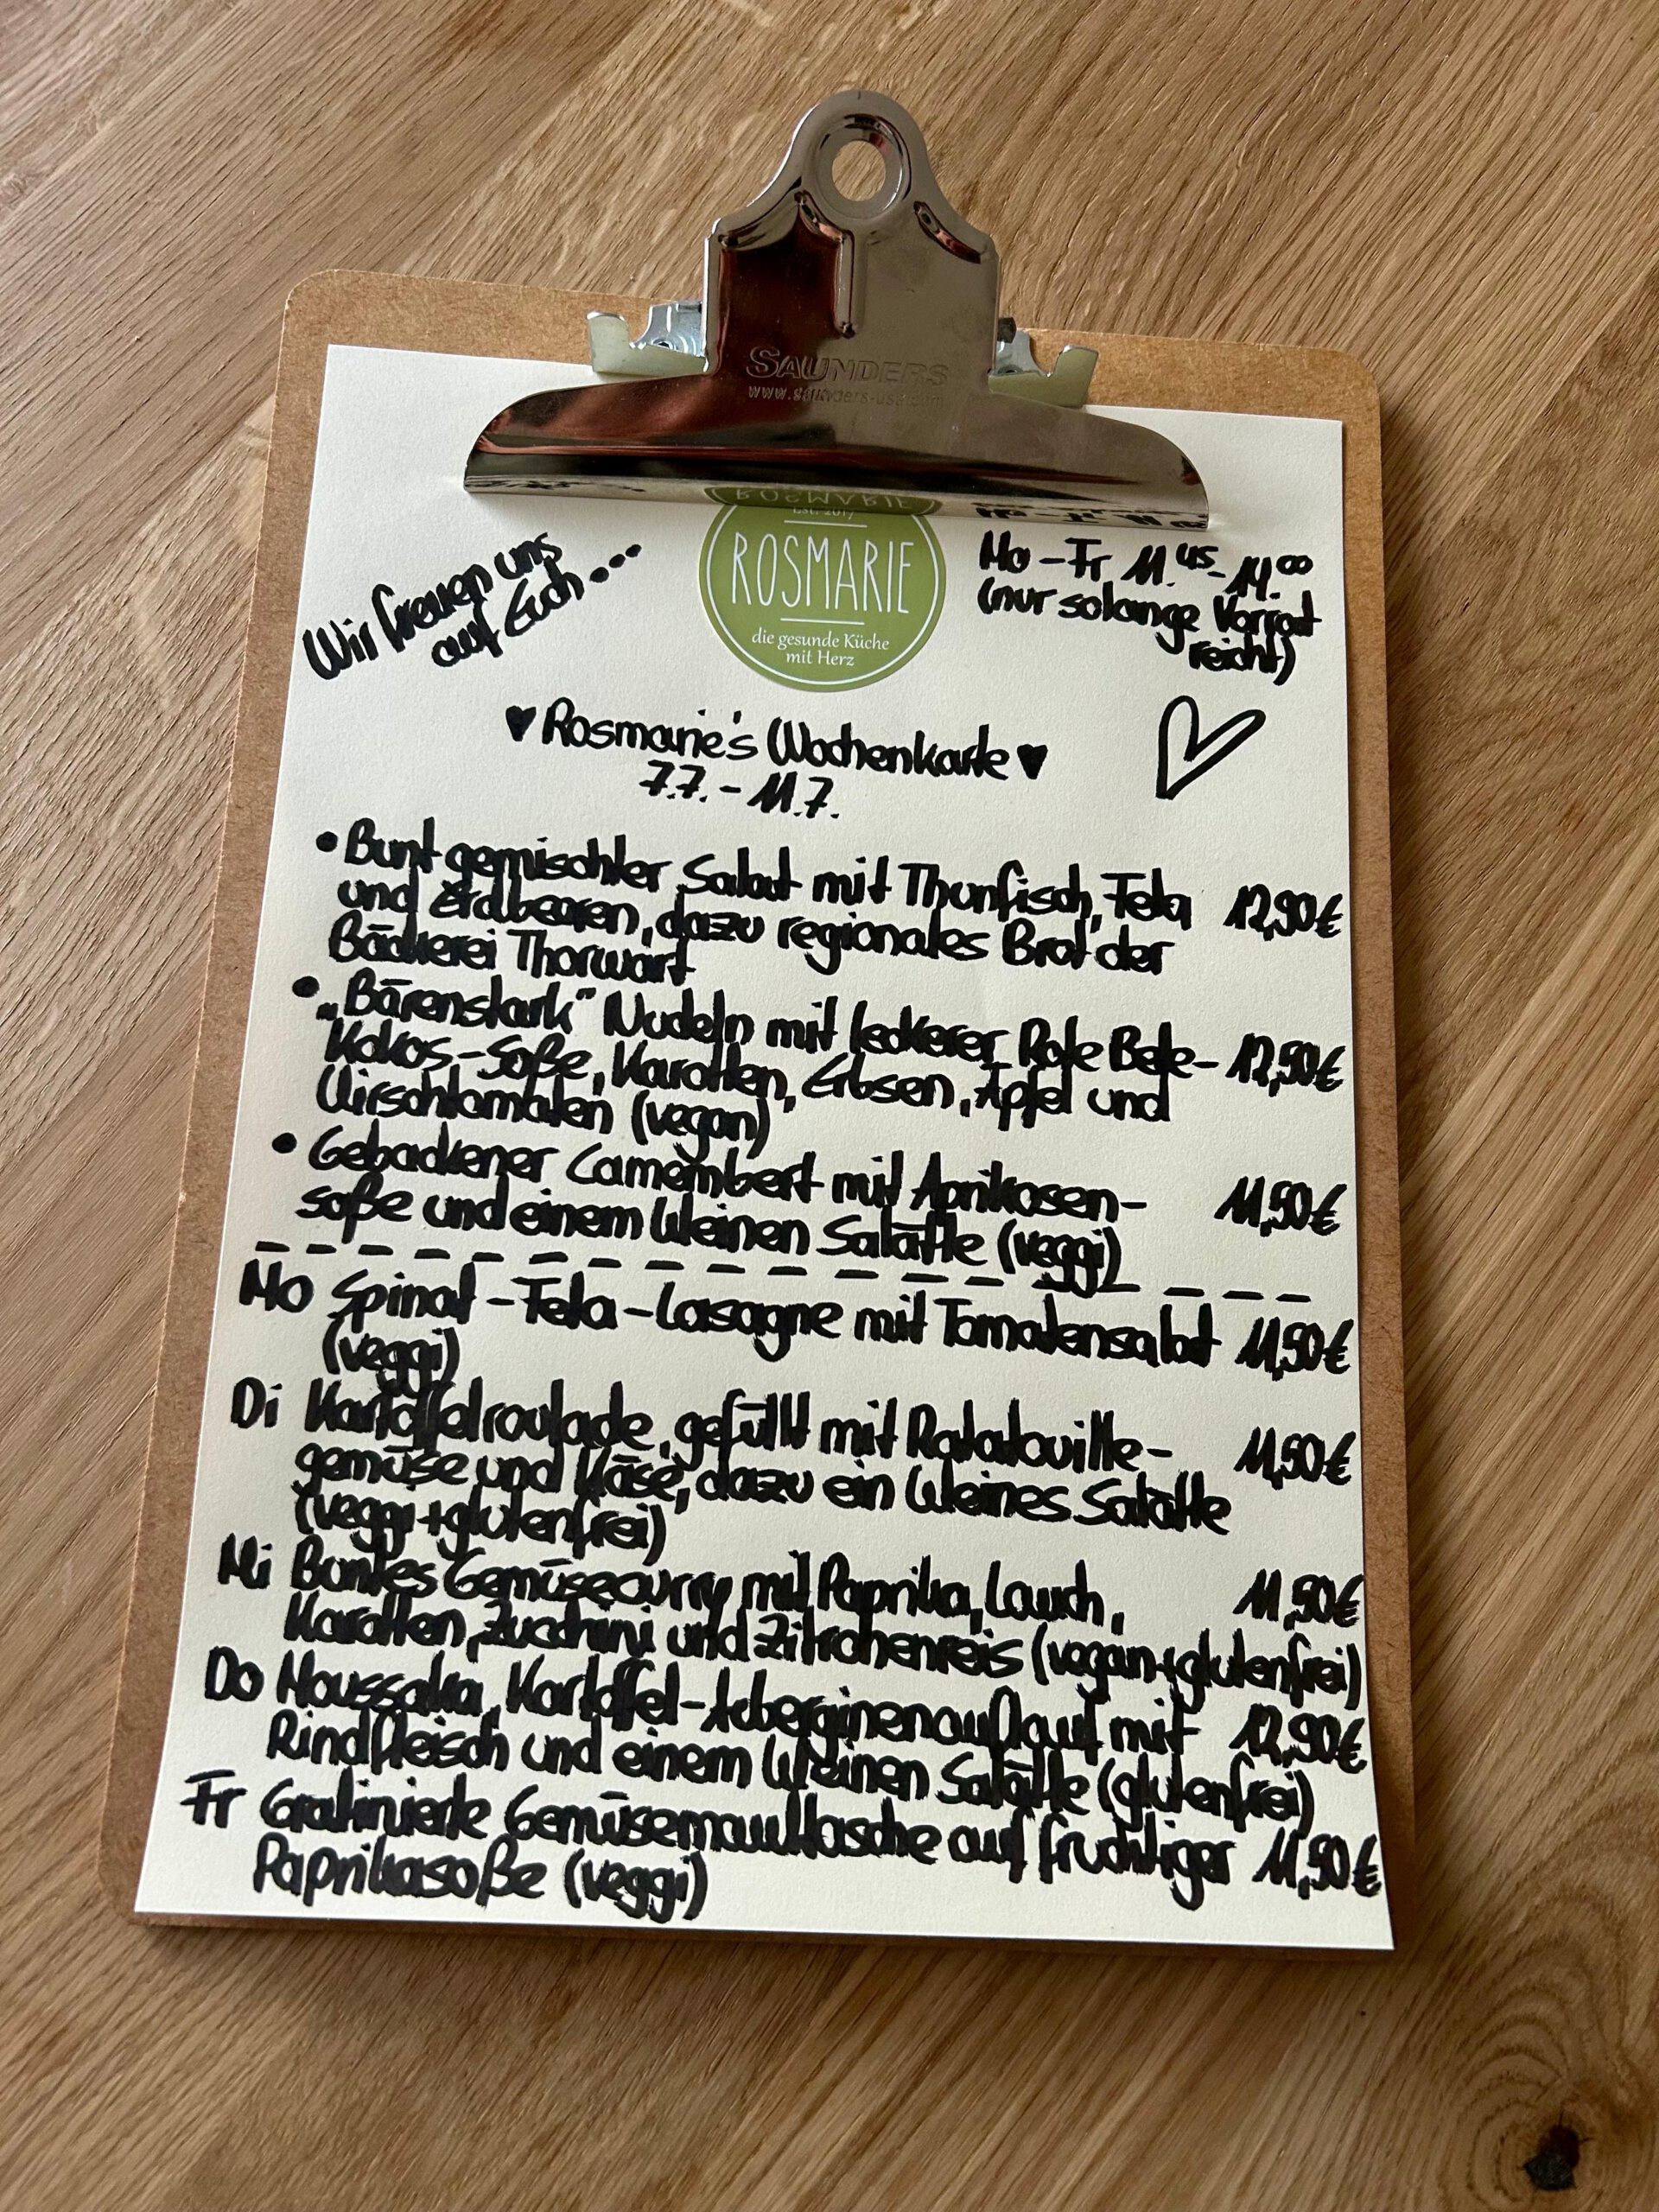 SAUNDERS
www.saunders-usa.com
EST. 2017
ROSMARIE
die gesunde Küche
mit Herz
Wir freuen uns
auf Euch...
Mo-Fr 11.45-14.00
(nur solange Vorrat
reicht)
♥ Rosmarie's Wochenkarte ♥
7.7.-11.7.
• Bunt gemischter Salat mit Thunfisch, Feta 12,90€
und Erdbeeren, dazu regionales Brot der
Bäckerei Thorwart
• „Bärenstark" Nudeln mit leckerer Rote Bete- 12,50€
Kokos-Soße, Karotten, Erbsen, Äpfel und
Kirschtomaten (vegan)
• Gebackener Camembert mit Aprikosen- 11,50€
soße und einem kleinen Salätle (veggi)
Mo Spinat-Feta-Lasagne mit Tomatensalat 11,50€
(veggi)
Di Kartoffelroulade, gefüllt mit Ratatouille- 11,50€
gemüse und Käse, dazu ein kleines Salätle
(veggi+glutenfrei)
Mi Buntes Gemüsecurry mit Paprika, Lauch, 11,50€
Karotten, Zucchini und Zitronenreis (vegan+glutenfrei)
Do Moussaka, Kartoffel-Auberginenauflauf mit 12,90€
Rindfleisch und einem kleinen Salätle (glutenfrei)
Fr Gratinierte Gemüsemaultasche auf fruchtiger 11,50€
Paprikasoße (veggi)